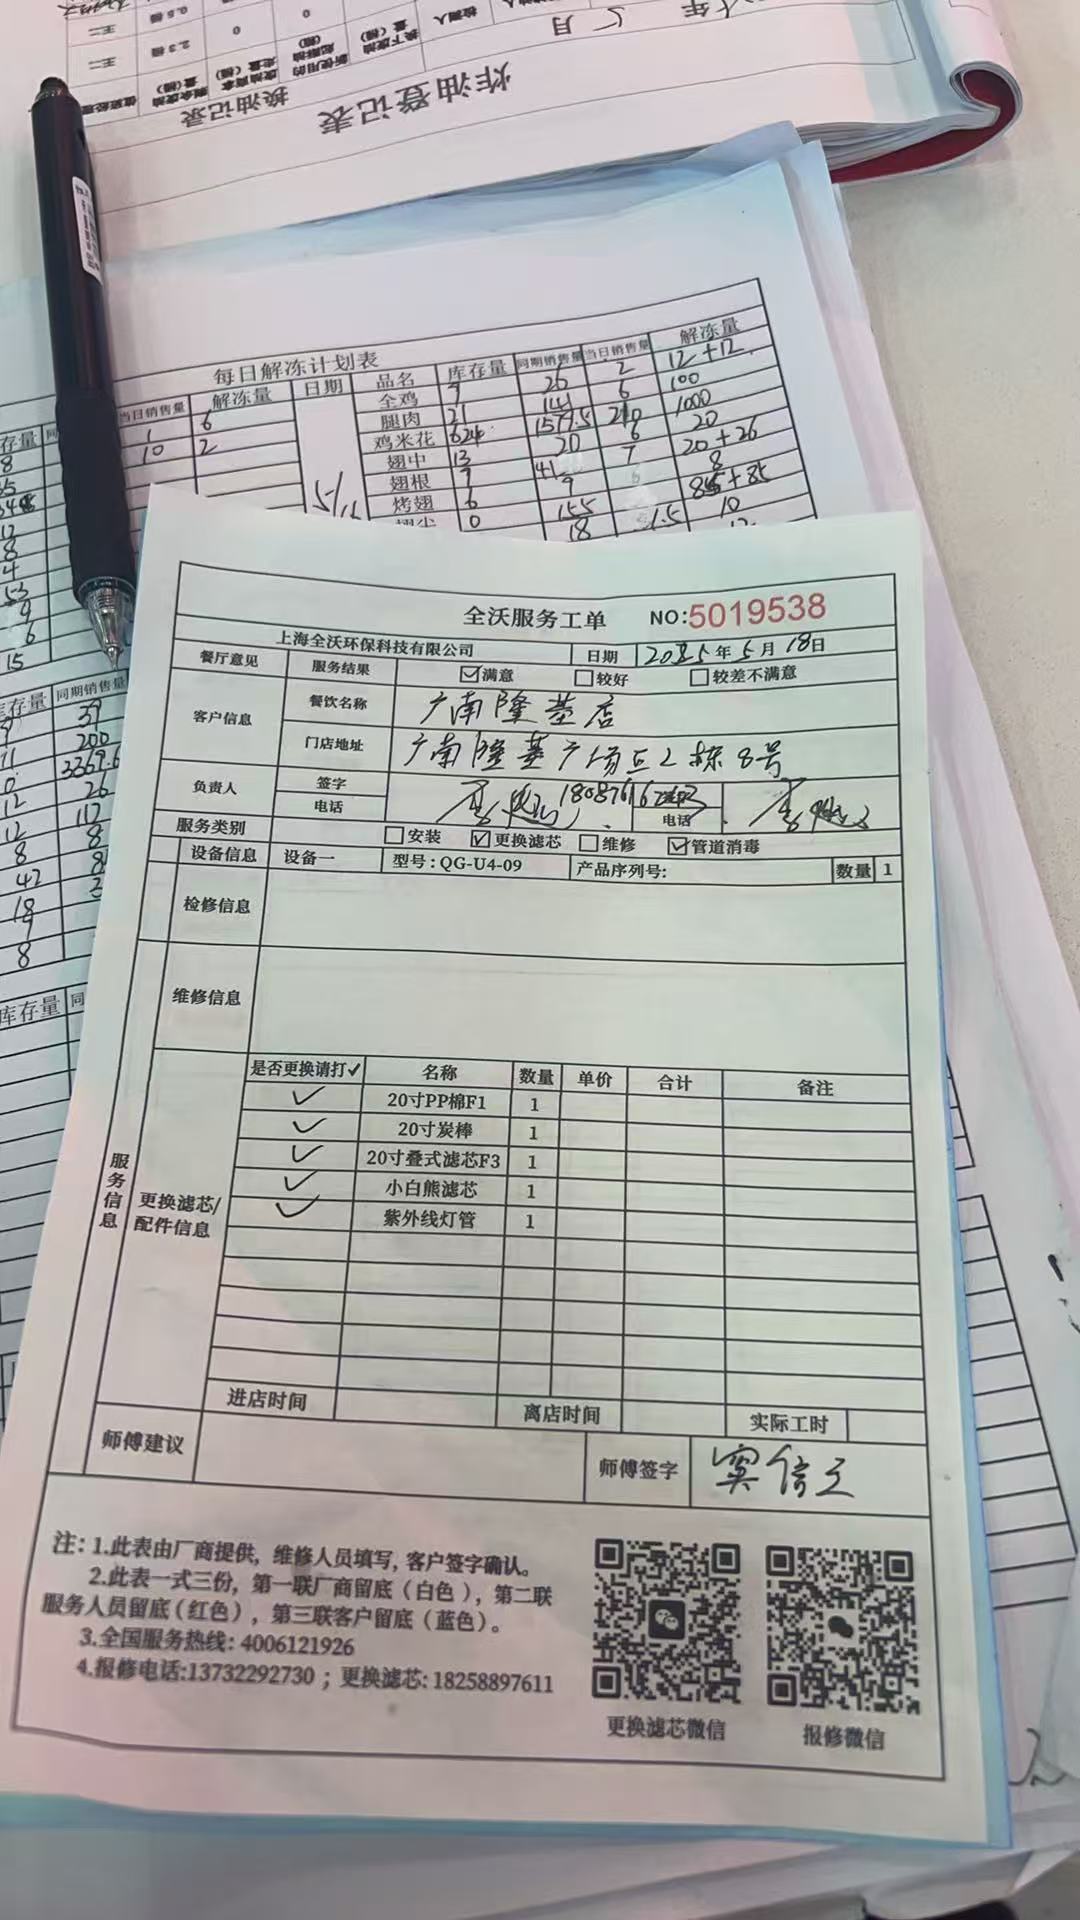 炸油登记表
换油记录
月
每日解冻计划表
当日销售量 解冻量 日期 品名 库存量 同期销售量 当日销售量 解冻量
1 6 全鸡 9 26 2 12+12
10 2 腿肉 21 141 6 100
鸡米花 624 1579.5 210 1000
翅中 13 20 6 20
翅根 7 41 7 20+26
烤翅 6 9 6 8
0 155
18 1.5 10
库存量 同期销售量
39
200
3369.6
12 26
12 117
8 8
42 8
18
9
8
库存量
全沃服务工单 NO:5019538
上海全沃环保科技有限公司 日期 2025年5月18日
餐厅意见 服务结果 ☑满意 ☐较好 ☐较差不满意
客户信息 餐饮名称 广南隆基店
门店地址 广南隆基广场2栋8号
负责人 签字
电话 电话
服务类别 ☐安装 ☑更换滤芯 ☐维修 ☑管道消毒
设备信息 设备一 型号:QG-U4-09 产品序列号: 数量 1
检修信息
维修信息
服务信息
更换滤芯/
配件信息
是否更换请打✓ 名称 数量 单价 合计 备注
✓ 20寸PP棉F1 1
✓ 20寸炭棒 1
✓ 20寸叠式滤芯F3 1
✓ 小白熊滤芯 1
✓ 紫外线灯管 1
进店时间 离店时间 实际工时
师傅建议 师傅签字
注:1.此表由厂商提供,维修人员填写,客户签字确认。
2.此表一式三份,第一联厂商留底(白色),第二联
服务人员留底(红色),第三联客户留底(蓝色)。
3.全国服务热线:4006121926
4.报修电话:13732292730;更换滤芯:18258897611
更换滤芯微信 报修微信